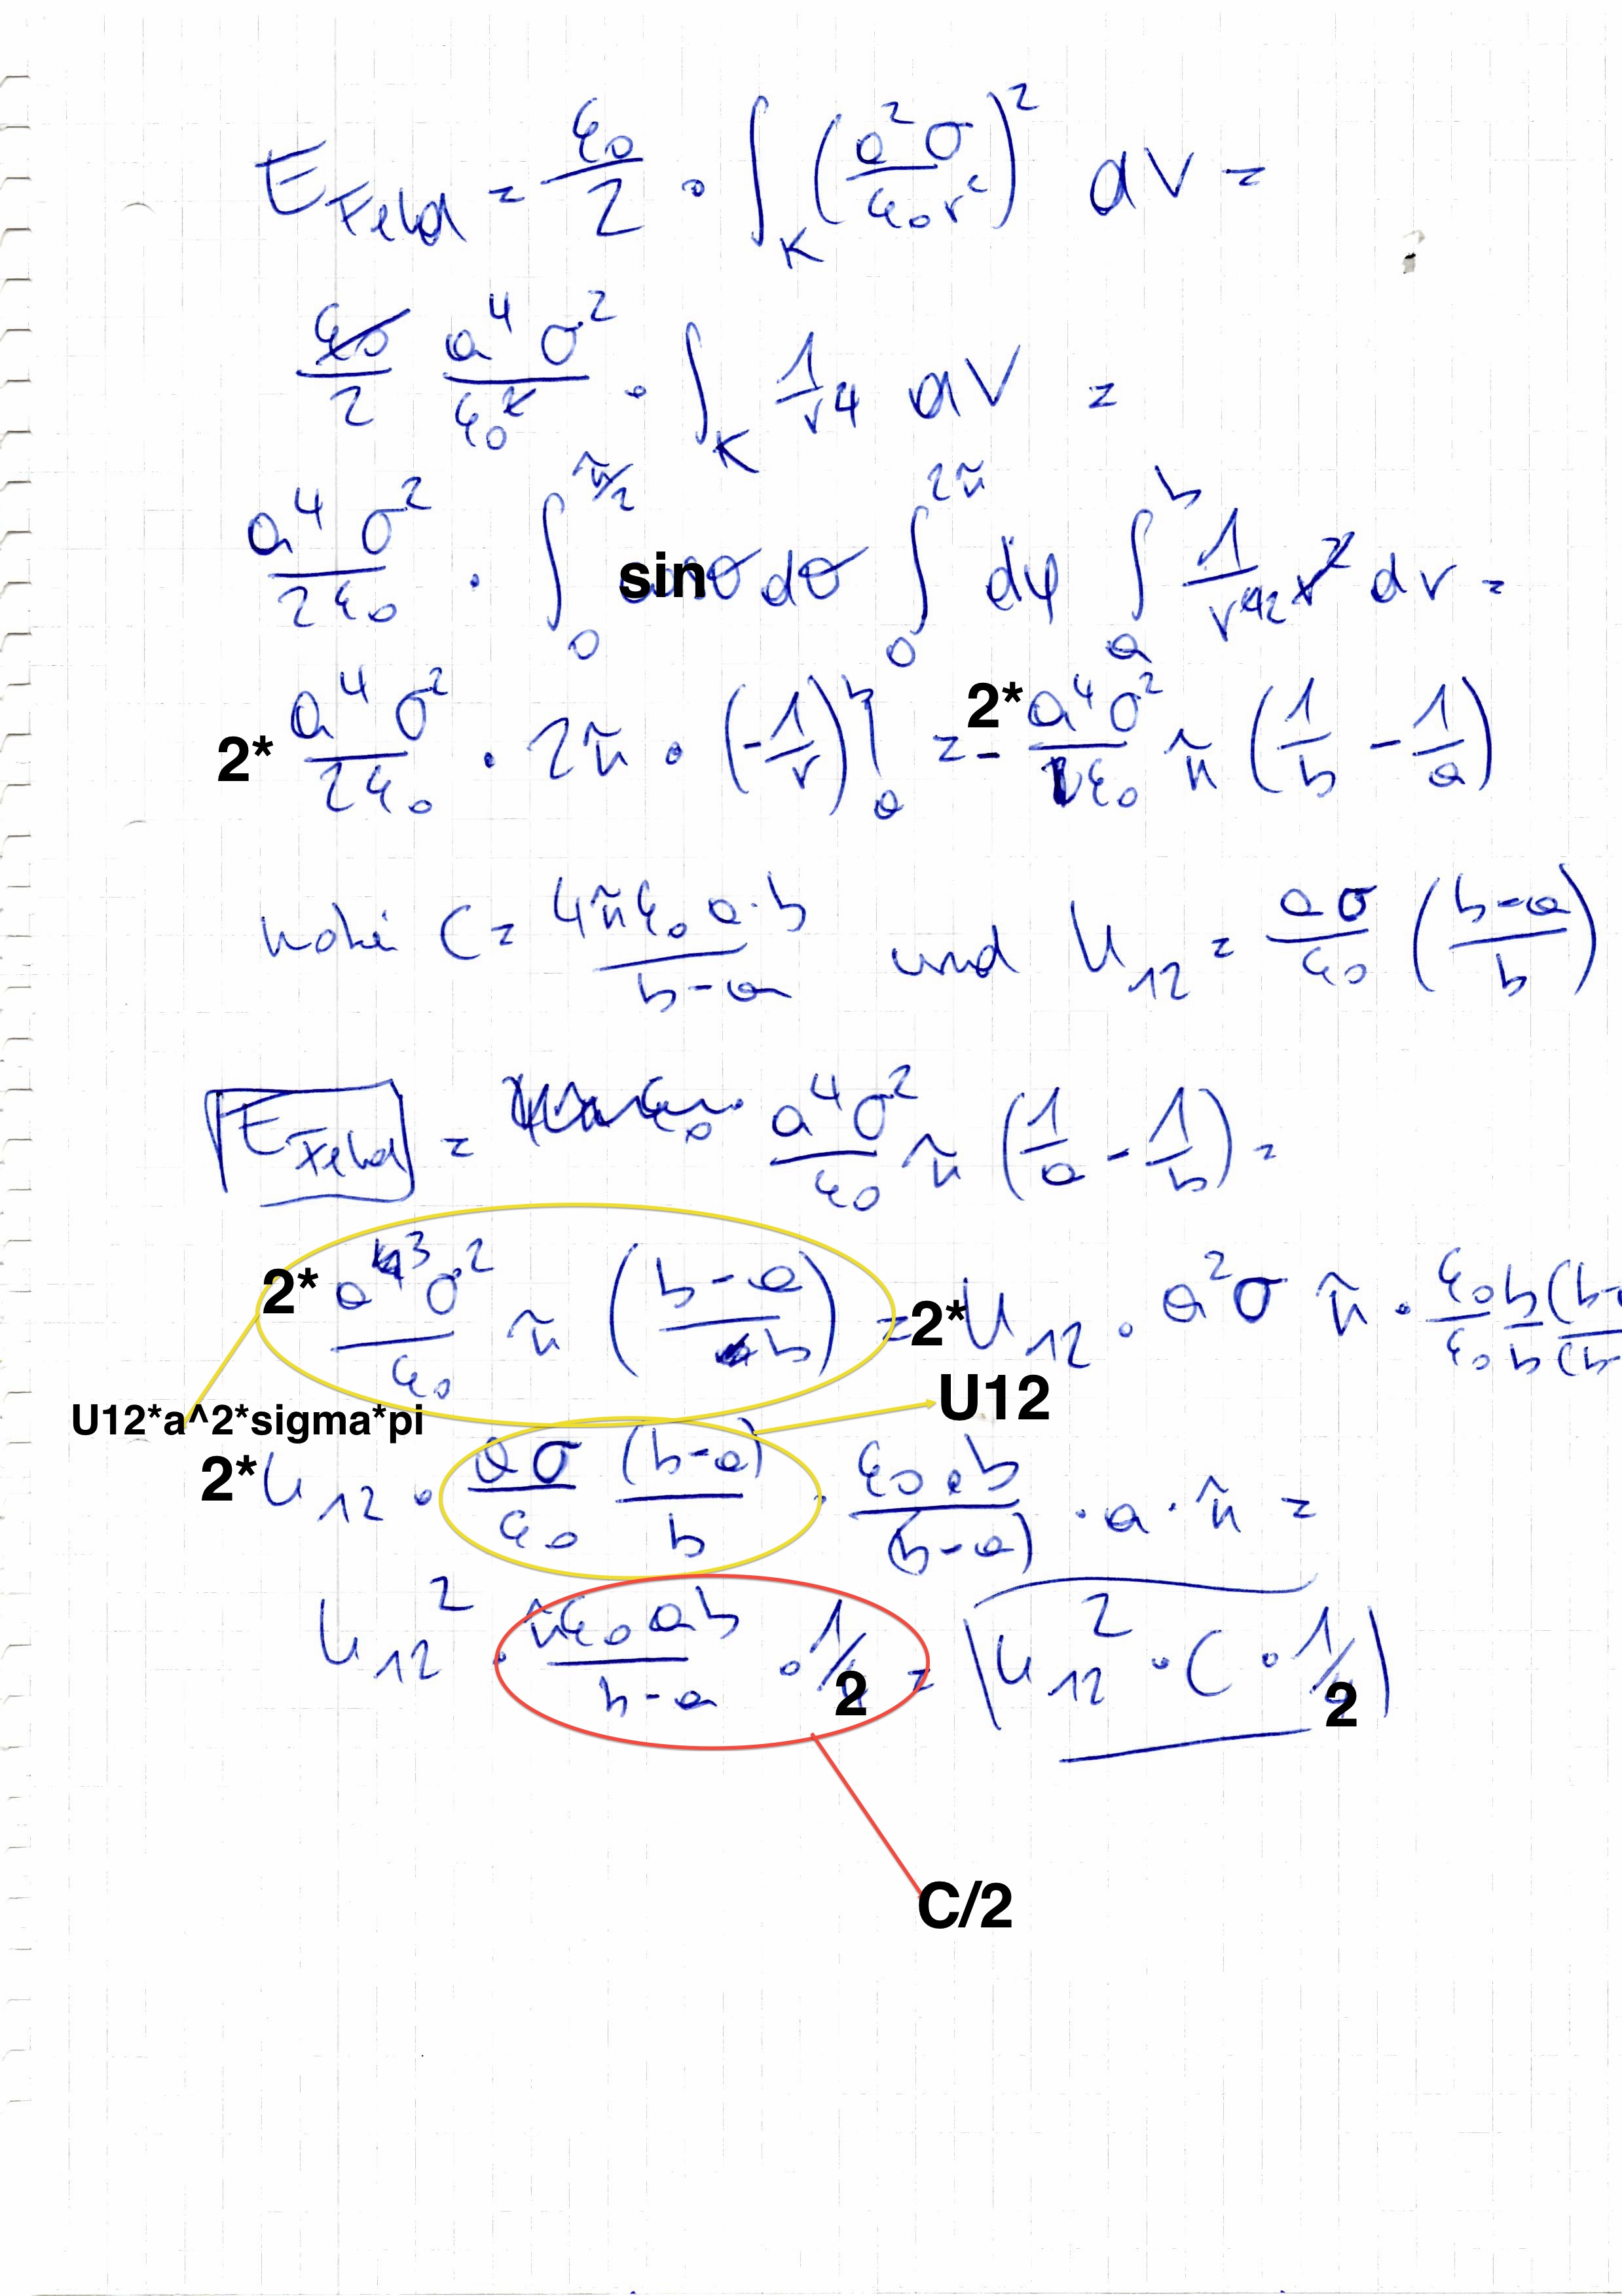 E_Feld = ε₀/2 · ∫_K (a²σ/ε₀r²)² dV =
ε₀/2 a⁴σ²/ε₀² · ∫_K 1/r⁴ dV =
a⁴σ²/2ε₀ · ∫₀^π/2 sin θ dθ ∫₀^2π dφ ∫ₐ^b 1/r⁴² r² dr =
2* a⁴σ²/2ε₀ · 2π · (-1/r)|ₐ^b = - 2* a⁴σ²/1ε₀ π (1/b - 1/a)
C = 4πε₀ a·b/b-a und U₁₂ = aσ/ε₀ (b-a/b)
E_Feld = a⁴σ²/ε₀ π (1/a - 1/b) =
2* a³σ²/ε₀ π (b-a/b) = 2* U₁₂ · a²σ π · ε₀b(b-/ε₀b(b-
U12*a^2*sigma*pi
U12
2* U₁₂ · aσ/ε₀ (b-a)/b · ε₀ab/(b-a) · a · π =
U₁₂² · πε₀ab/b-a · 1/2 = U₁₂² · C · 1/2
C/2